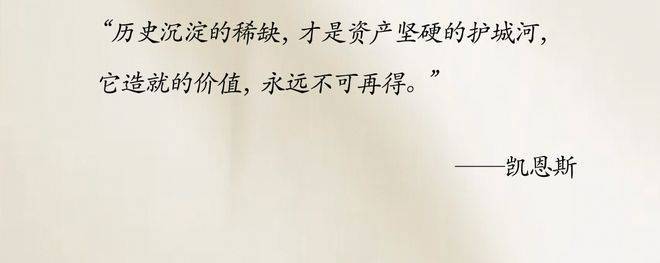 “历史沉淀的稀缺，才是资产坚硬的护城河，
它造就的价值，永远不可再得。”
——凯恩斯